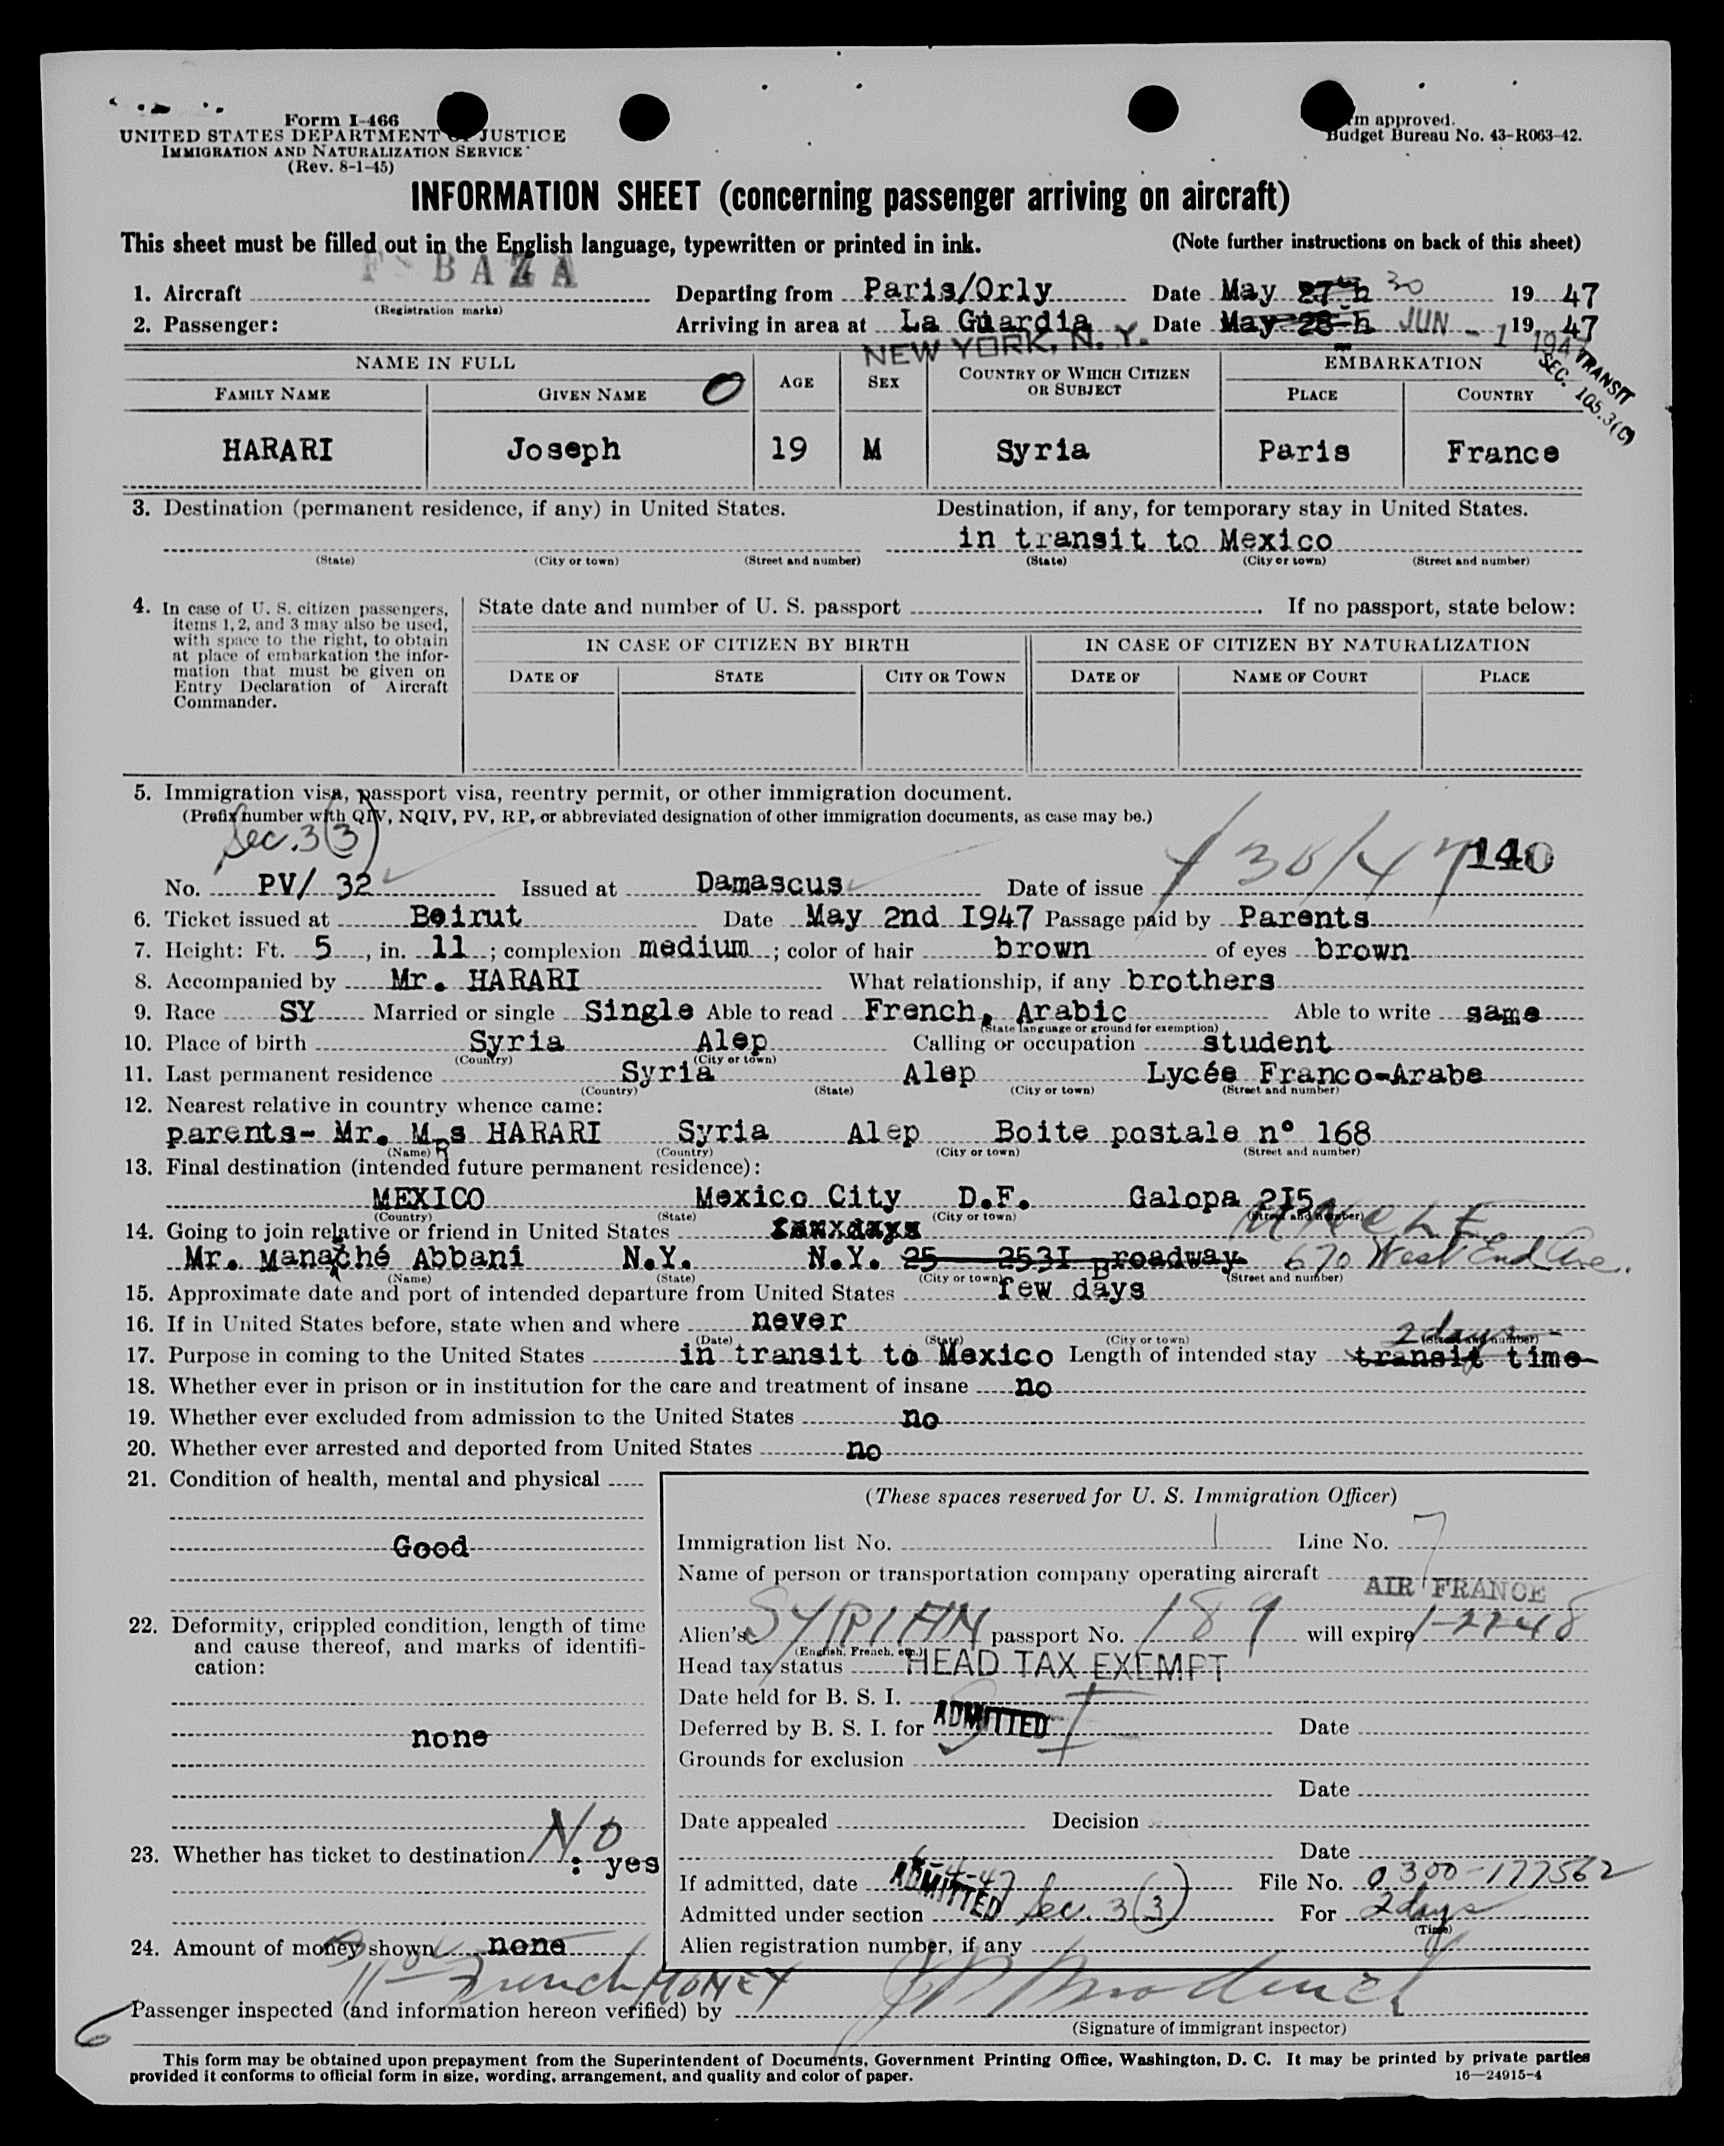 Form I-466
UNITED STATES DEPARTMENT OF JUSTICE
IMMIGRATION AND NATURALIZATION SERVICE
(Rev. 8-1-45)
approved.
Budget Bureau No. 43-R063-42.
INFORMATION SHEET (concerning passenger arriving on aircraft)
This sheet must be filled out in the English language, typewritten or printed in ink. (Note further instructions on back of this sheet)
F BAZA
1. Aircraft Departing from Paris/Orly Date May 27th 30 1947
(Registration marks)
2. Passenger: Arriving in area at La Guardia Date May 28 h JUN - 1 1947 1947
NEW YORK, N. Y.
TRANSIT
SEC. 105.3(C)
NAME IN FULL AGE SEX COUNTRY OF WHICH CITIZEN OR SUBJECT EMBARKATION
FAMILY NAME GIVEN NAME O PLACE COUNTRY
HARARI Joseph 19 M Syria Paris France
3. Destination (permanent residence, if any) in United States. Destination, if any, for temporary stay in United States.
in transit to Mexico
(State) (City or town) (Street and number) (State) (City or town) (Street and number)
4. In case of U. S. citizen passengers, items 1, 2, and 3 may also be used, with space to the right, to obtain at place of embarkation the information that must be given on Entry Declaration of Aircraft Commander.
State date and number of U. S. passport . If no passport, state below:
IN CASE OF CITIZEN BY BIRTH IN CASE OF CITIZEN BY NATURALIZATION
DATE OF STATE CITY OR TOWN DATE OF NAME OF COURT PLACE
5. Immigration visa, passport visa, reentry permit, or other immigration document.
(Prefix number with QIV, NQIV, PV, RP, or abbreviated designation of other immigration documents, as case may be.)
Sec. 3(3)
140
No. PV/ 32 Issued at Damascus Date of issue 30/47
6. Ticket issued at Beirut Date May 2nd I947 Passage paid by Parents
7. Height: Ft. 5, in. 11; complexion medium; color of hair brown of eyes brown
8. Accompanied by Mr. HARARI What relationship, if any brothers
9. Race SY Married or single Single Able to read French, Arabic Able to write same
(State language or ground for exemption)
10. Place of birth Syria Alep Calling or occupation student
(Country) (City or town)
11. Last permanent residence Syria Alep Lycée Franco-Arabe
(Country) (State) (City or town) (Street and number)
12. Nearest relative in country whence came:
parents- Mr. Mrs HARARI Syria Alep Boite postale n° 168
(Name) (Country) (City or town) (Street and number)
13. Final destination (intended future permanent residence):
MEXICO Mexico City D.F. Galopa 2I5
(Country) (State) (City or town) (Street and number)
14. Going to join relative or friend in United States UNCLE
Mr. Manaché Abbani N.Y. N.Y. 25 253I Broadway 670 West End Ave.
(Name) (State) (City or town) (Street and number)
15. Approximate date and port of intended departure from United States few days
16. If in United States before, state when and where never
(Date) (State) (City or town) (Street and number)
2 days -
17. Purpose in coming to the United States in transit to Mexico Length of intended stay transit time
18. Whether ever in prison or in institution for the care and treatment of insane no
19. Whether ever excluded from admission to the United States no
20. Whether ever arrested and deported from United States no
21. Condition of health, mental and physical
Good
22. Deformity, crippled condition, length of time and cause thereof, and marks of identification:
none
NO
23. Whether has ticket to destination : yes
24. Amount of money shown none
French MONEY
(These spaces reserved for U. S. Immigration Officer)
Immigration list No. 1 Line No. 7
Name of person or transportation company operating aircraft
AIR FRANCE
Alien's SYRIAN passport No. 189 will expire 1-22-48
(English, French, etc.)
Head tax status HEAD TAX EXEMPT
Date held for B. S. I.
Deferred by B. S. I. for ADMITTED Date
Grounds for exclusion
Date
Date appealed Decision
Date
If admitted, date 6-4-47 File No. 0300-177562
ADMITTED
Admitted under section Sec. 3(3) For 2 days
(Time)
Alien registration number, if any
6
Passenger inspected (and information hereon verified) by
(Signature of immigrant inspector)
This form may be obtained upon prepayment from the Superintendent of Documents, Government Printing Office, Washington, D. C. It may be printed by private parties
provided it conforms to official form in size, wording, arrangement, and quality and color of paper.
16—24915-4